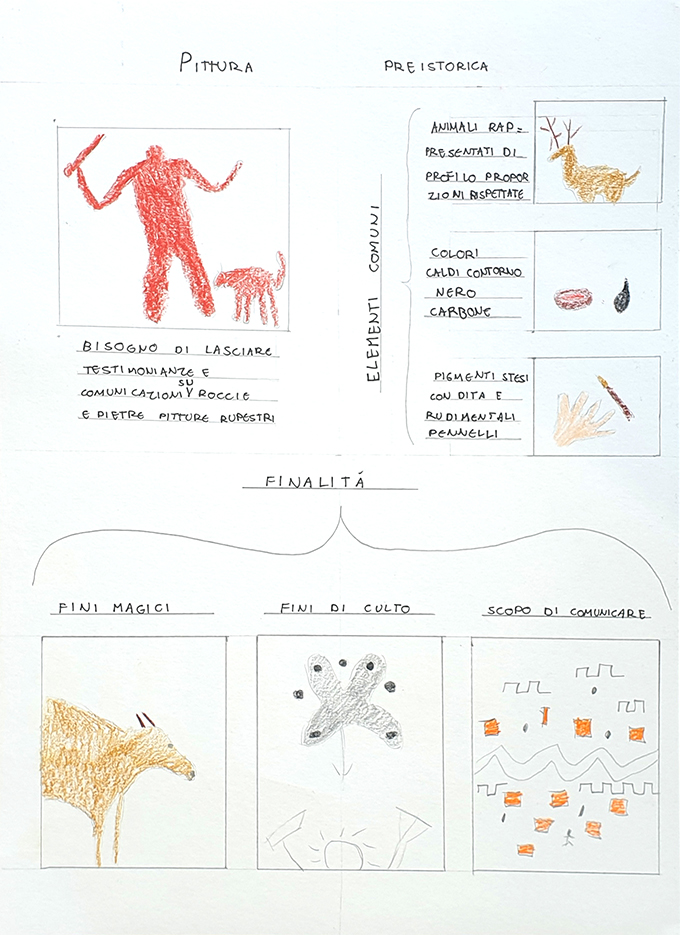 PITTURA PREISTORICA
BISOGNO DI LASCIARE
TESTIMONIANZE E
COMUNICAZIONI SU ROCCIE
E PIETRE PITTURE RUPESTRI
ELEMENTI COMUNI
ANIMALI RAP=
PRESENTATI DI
PROFILO PROPOR
ZIONI RISPETTATE
COLORI
CALDI CONTORNO
NERO
CARBONE
PIGMENTI STESI
CON DITA E
RUDIMENTALI
PENNELLI
FINALITÁ
FINI MAGICI
FINI DI CULTO
SCOPO DI COMUNICARE